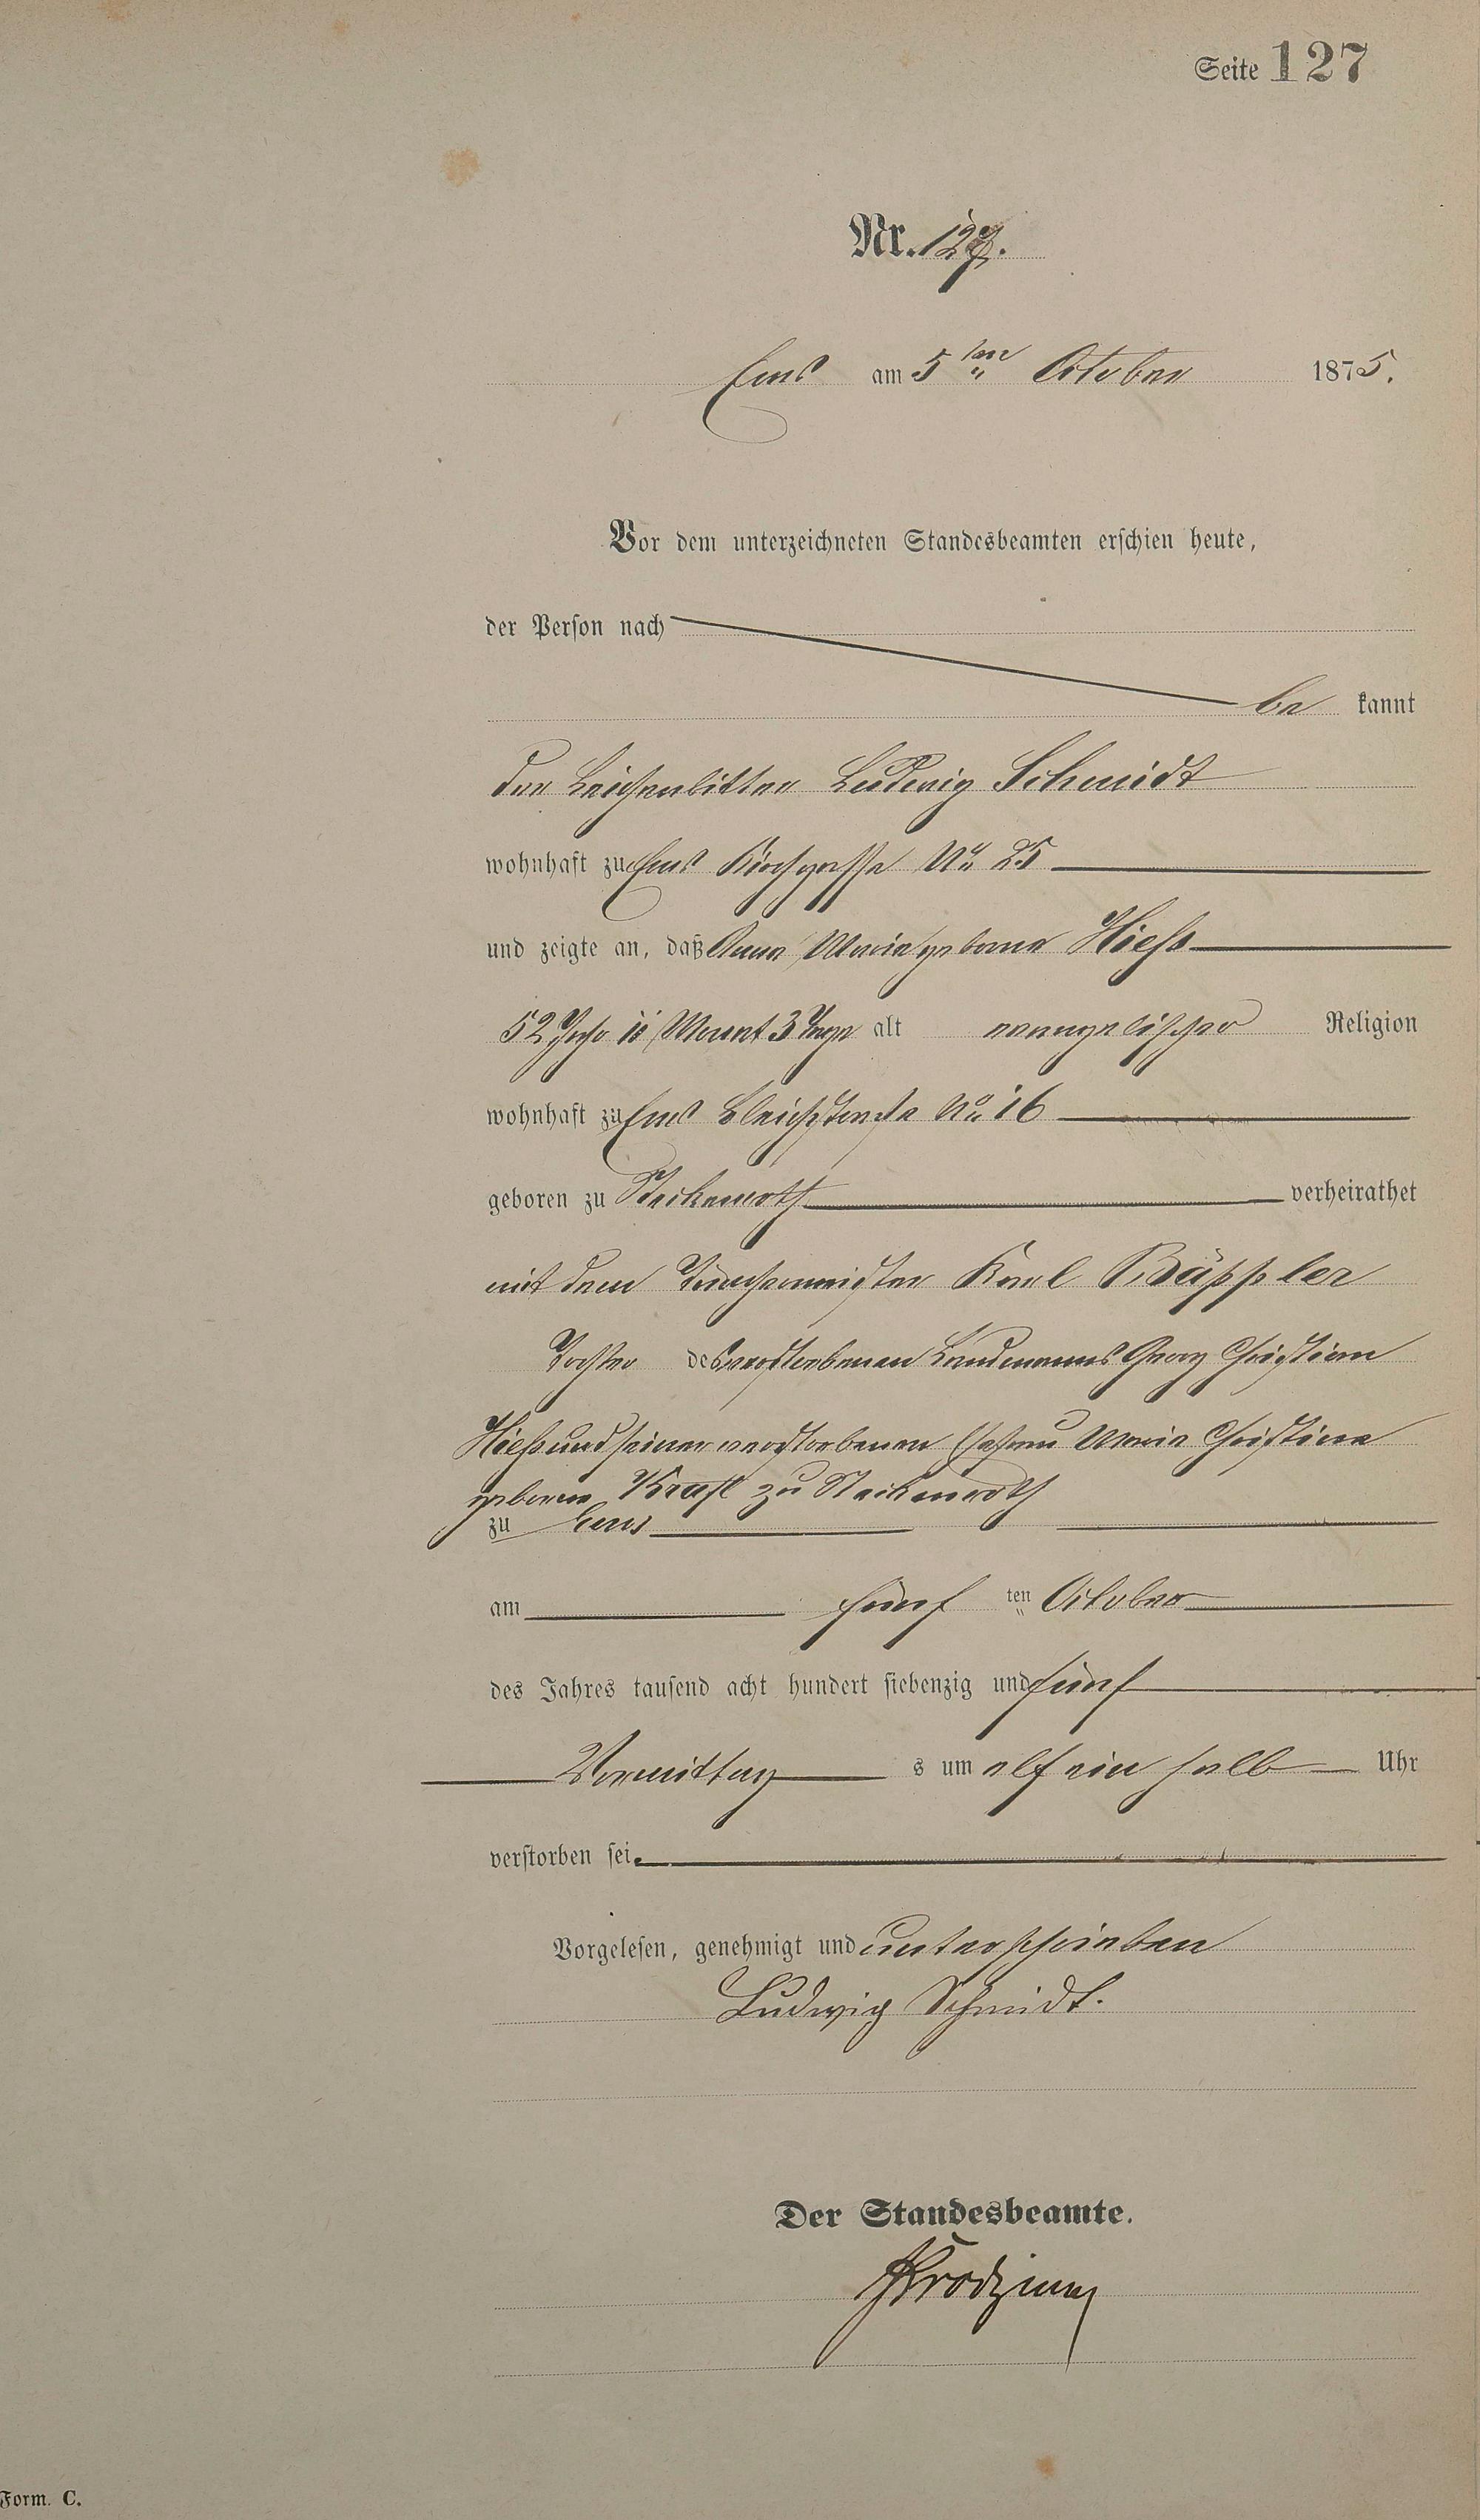 Seite 127
Nr. 127.
Ems am 5ten October 1875.
Vor dem unterzeichneten Standesbeamten erschien heute,
der Person nach
be kannt
der Leichenbitter Ludwig Schmidt
wohnhaft zu Ems Kirchgasse No 25
und zeigte an, daß Anna Maria geborne Hiess
52 Jahr 11 Monat 3 Tage alt evangelischer Religion
wohnhaft zu Ems Bleichstrasse No 16
geboren zu Steckenroth verheirathet
mit dem Tünchermeister Karl Bäppler
Tochter des verstorbenen Landmanns Georg Christian
Hiess und seiner verstorbenen Ehefrau Maria Christina
geborne Kraft zu Steckenroth
zu Ems
am fünf ten October
des Jahres tausend acht hundert siebenzig und fünf
Vormittag s um elf ein halb Uhr
verstorben sei.
Vorgelesen, genehmigt und unterschrieben
Ludwig Schmidt.
Der Standesbeamte.
Form. C.